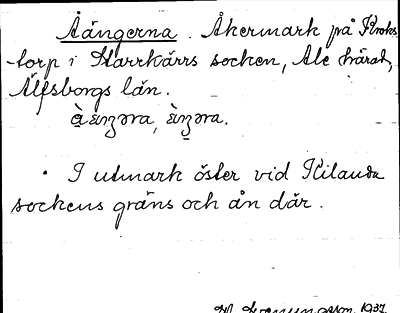 Åängerna. Åkermark på Kroks-
torp i Starrkärrs socken, Ale härad,
Älfsborgs län.
I utmark öster vid Kilanda
sockens gräns och ån där.
1937